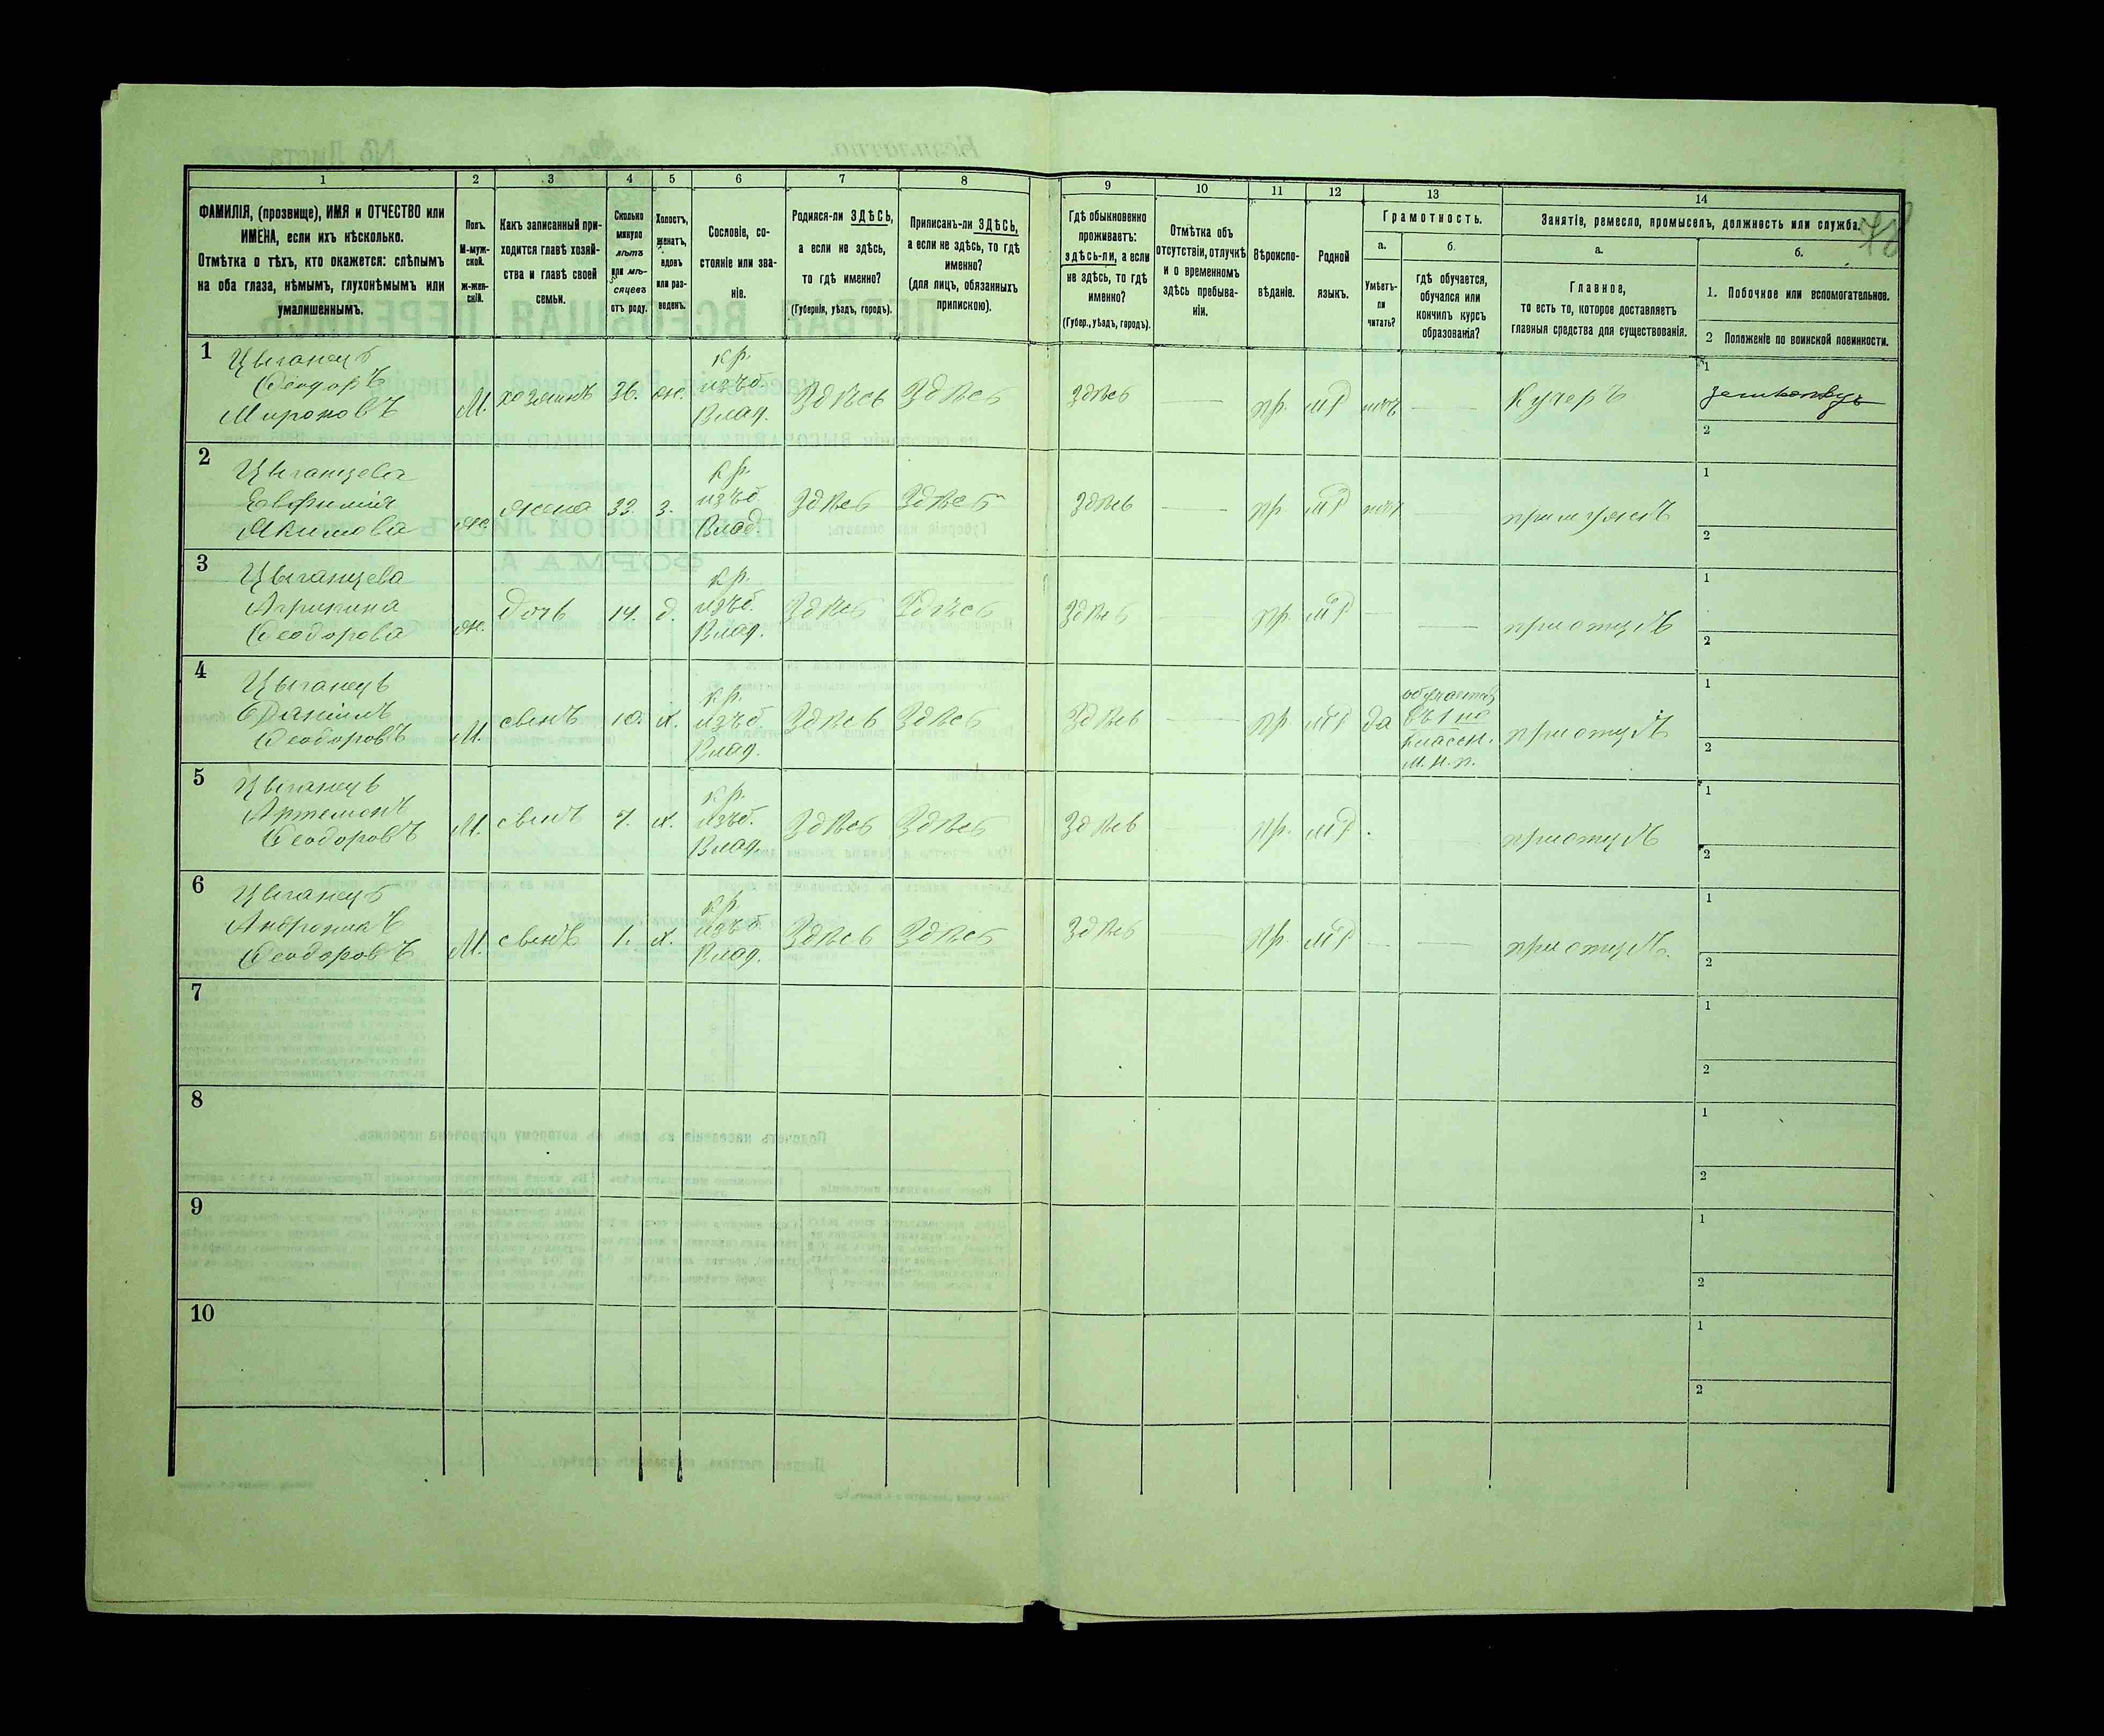 1 2 3 4 5 6 7 8 9 10 11 12 13 14
ФАМИЛІЯ, (прозвище), ИМЯ и ОТЧЕСТВО или
ИМЕНА, если ихъ нѣсколько.
Отмѣтка о тѣхъ, кто окажется: слѣпымъ
на оба глаза, нѣмымъ, глухонѣмымъ или
умалишеннымъ.
Полъ.
М-муж-
ской.
Ж-жен-
скій.
Какъ записанный при-
ходится главѣ хозяй-
ства и главѣ своей
семьи.
Сколько
минуло
лѣтъ
или мѣ-
сяцевъ
отъ роду.
Холостъ,
женатъ,
вдовъ
или раз-
веденъ.
Сословіе, со-
стояніе или зва-
ніе.
Родился-ли ЗДѢСЬ,
а если не здѣсь,
то гдѣ именно?
(Губернія, уѣздъ, городъ).
Приписанъ-ли ЗДѢСЬ,
а если не здѣсь, то гдѣ
именно?
(для лицъ, обязанныхъ
припискою).
Гдѣ обыкновенно
проживаетъ:
здѣсь-ли, а если
не здѣсь, то гдѣ
именно?
(Губер., уѣздъ, городъ).
Отмѣтка объ
отсутствіи, отлучкѣ
и о временномъ
здѣсь пребыва-
ніи.
Вѣроиспо-
вѣданіе.
Родной
языкъ.
Грамотность.
а.
Умѣетъ-
ли
читать?
б.
Гдѣ обучается,
обучался или
кончилъ курсъ
образованія?
Занятіе, ремесло, промыселъ, должность или служба.
а.
Главное,
то есть то, которое доставляетъ
главныя средства для существованія.
б.
1. Побочное или вспомогательное.
2 Положеніе по воинской повинности.
1 Цыганецъ
Ѳеодоръ
Мироновъ
М. хозяинъ 36. ж.
кр.
изъб.
Влад.
Здѣсь Здѣсь Здѣсь — пр. мР — Кучеръ
1
2
2 Цыганцева
Евфимія
Якимова
ж. жена 33. з.
кр.
изъб.
Влад.
Здѣсь Здѣсь Здѣсь — пр. мР — при мужѣ
1
2
3 Цыганцева
Агрипина
Ѳеодорова
ж. дочь 14. д.
кр.
изъб.
Влад.
Здѣсь Здѣсь Здѣсь — пр. мР — — при отцѣ
1
2
4 Цыганецъ
Даніилъ
Ѳеодоровъ
М. сынъ 10. х.
кр.
изъб.
Влад.
Здѣсь Здѣсь Здѣсь — пр. мР да
обучается
въ 1 но
классн.
м. н. п.
при отцѣ
1
2
5 Цыганецъ
Артемонъ
Ѳеодоровъ
М. сынъ 7. х.
кр.
изъб.
Влад.
Здѣсь Здѣсь Здѣсь — пр. мР — при отцѣ
1
2
6 Цыганецъ
Андроникъ
Ѳеодоровъ
М. сынъ 1. х.
кр.
изъб.
Влад.
Здѣсь Здѣсь Здѣсь — пр. мР — — при отцѣ.
1
2
7
1
2
8
1
2
9
1
2
10
1
2